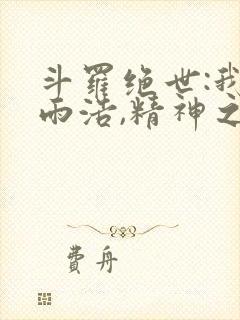 斗羅绝世:我
而活,精神之
費舟